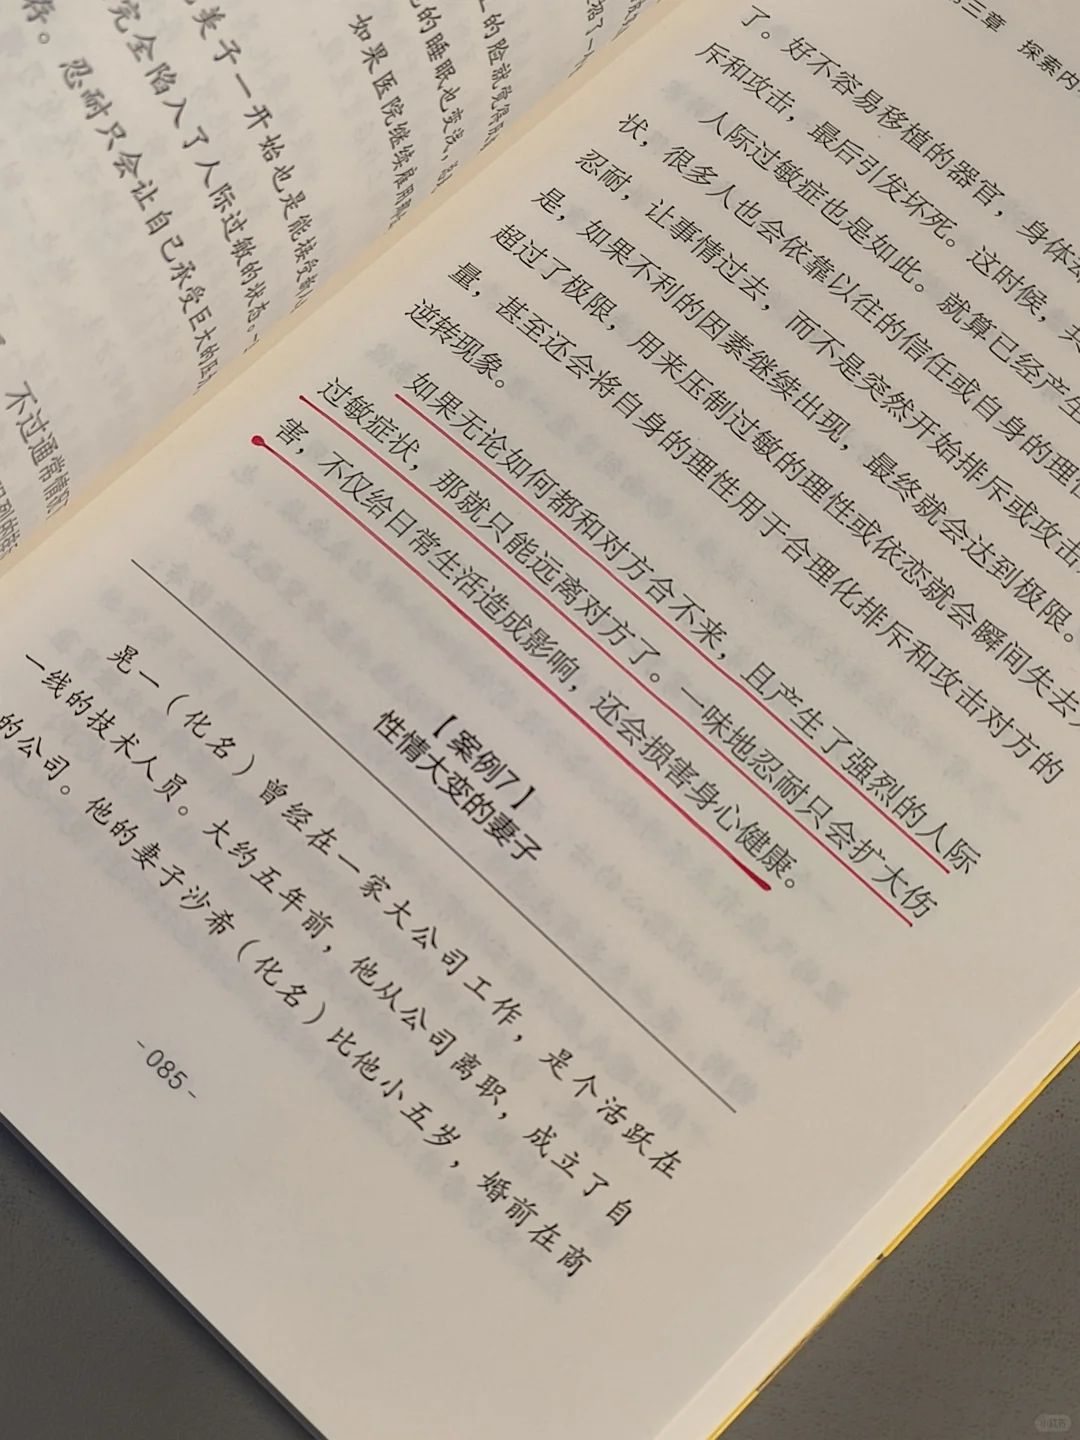 美子一开始也是能接受
完全陷入了人际过敏的状态。
忍耐只会让自己承受巨大的
不过通常情况
的脸就觉得
的睡眠也变浅，
如果医院继续雇用
第三章 探索内
了。好不容易移植的器官，身体
斥和攻击，最后引发坏死。
人际过敏症也是如此。就算已经产生
状，很多人也会依靠以往的信任或自身的理性
忍耐，让事情过去，而不是突然开始排斥或攻击
是，如果不利的因素继续出现，最终就会达到极限。
超过了极限，用来压制过敏的理性或依恋就会瞬间失去
量，甚至还会将自身的理性用于合理化排斥和攻击对方的
逆转现象。
如果无论如何都和对方合不来，且产生了强烈的人际
过敏症状，那就只能远离对方了。一味地忍耐只会扩大伤
害，不仅给日常生活造成影响，还会损害身心健康。
【案例7】
性情大变的妻子
晃一（化名）曾经在一家大公司工作，是个活跃在
一线的技术人员。大约五年前，他从公司离职，成立了自
的公司。他的妻子沙希（化名）比他小五岁，婚前在商
-085-
小红书